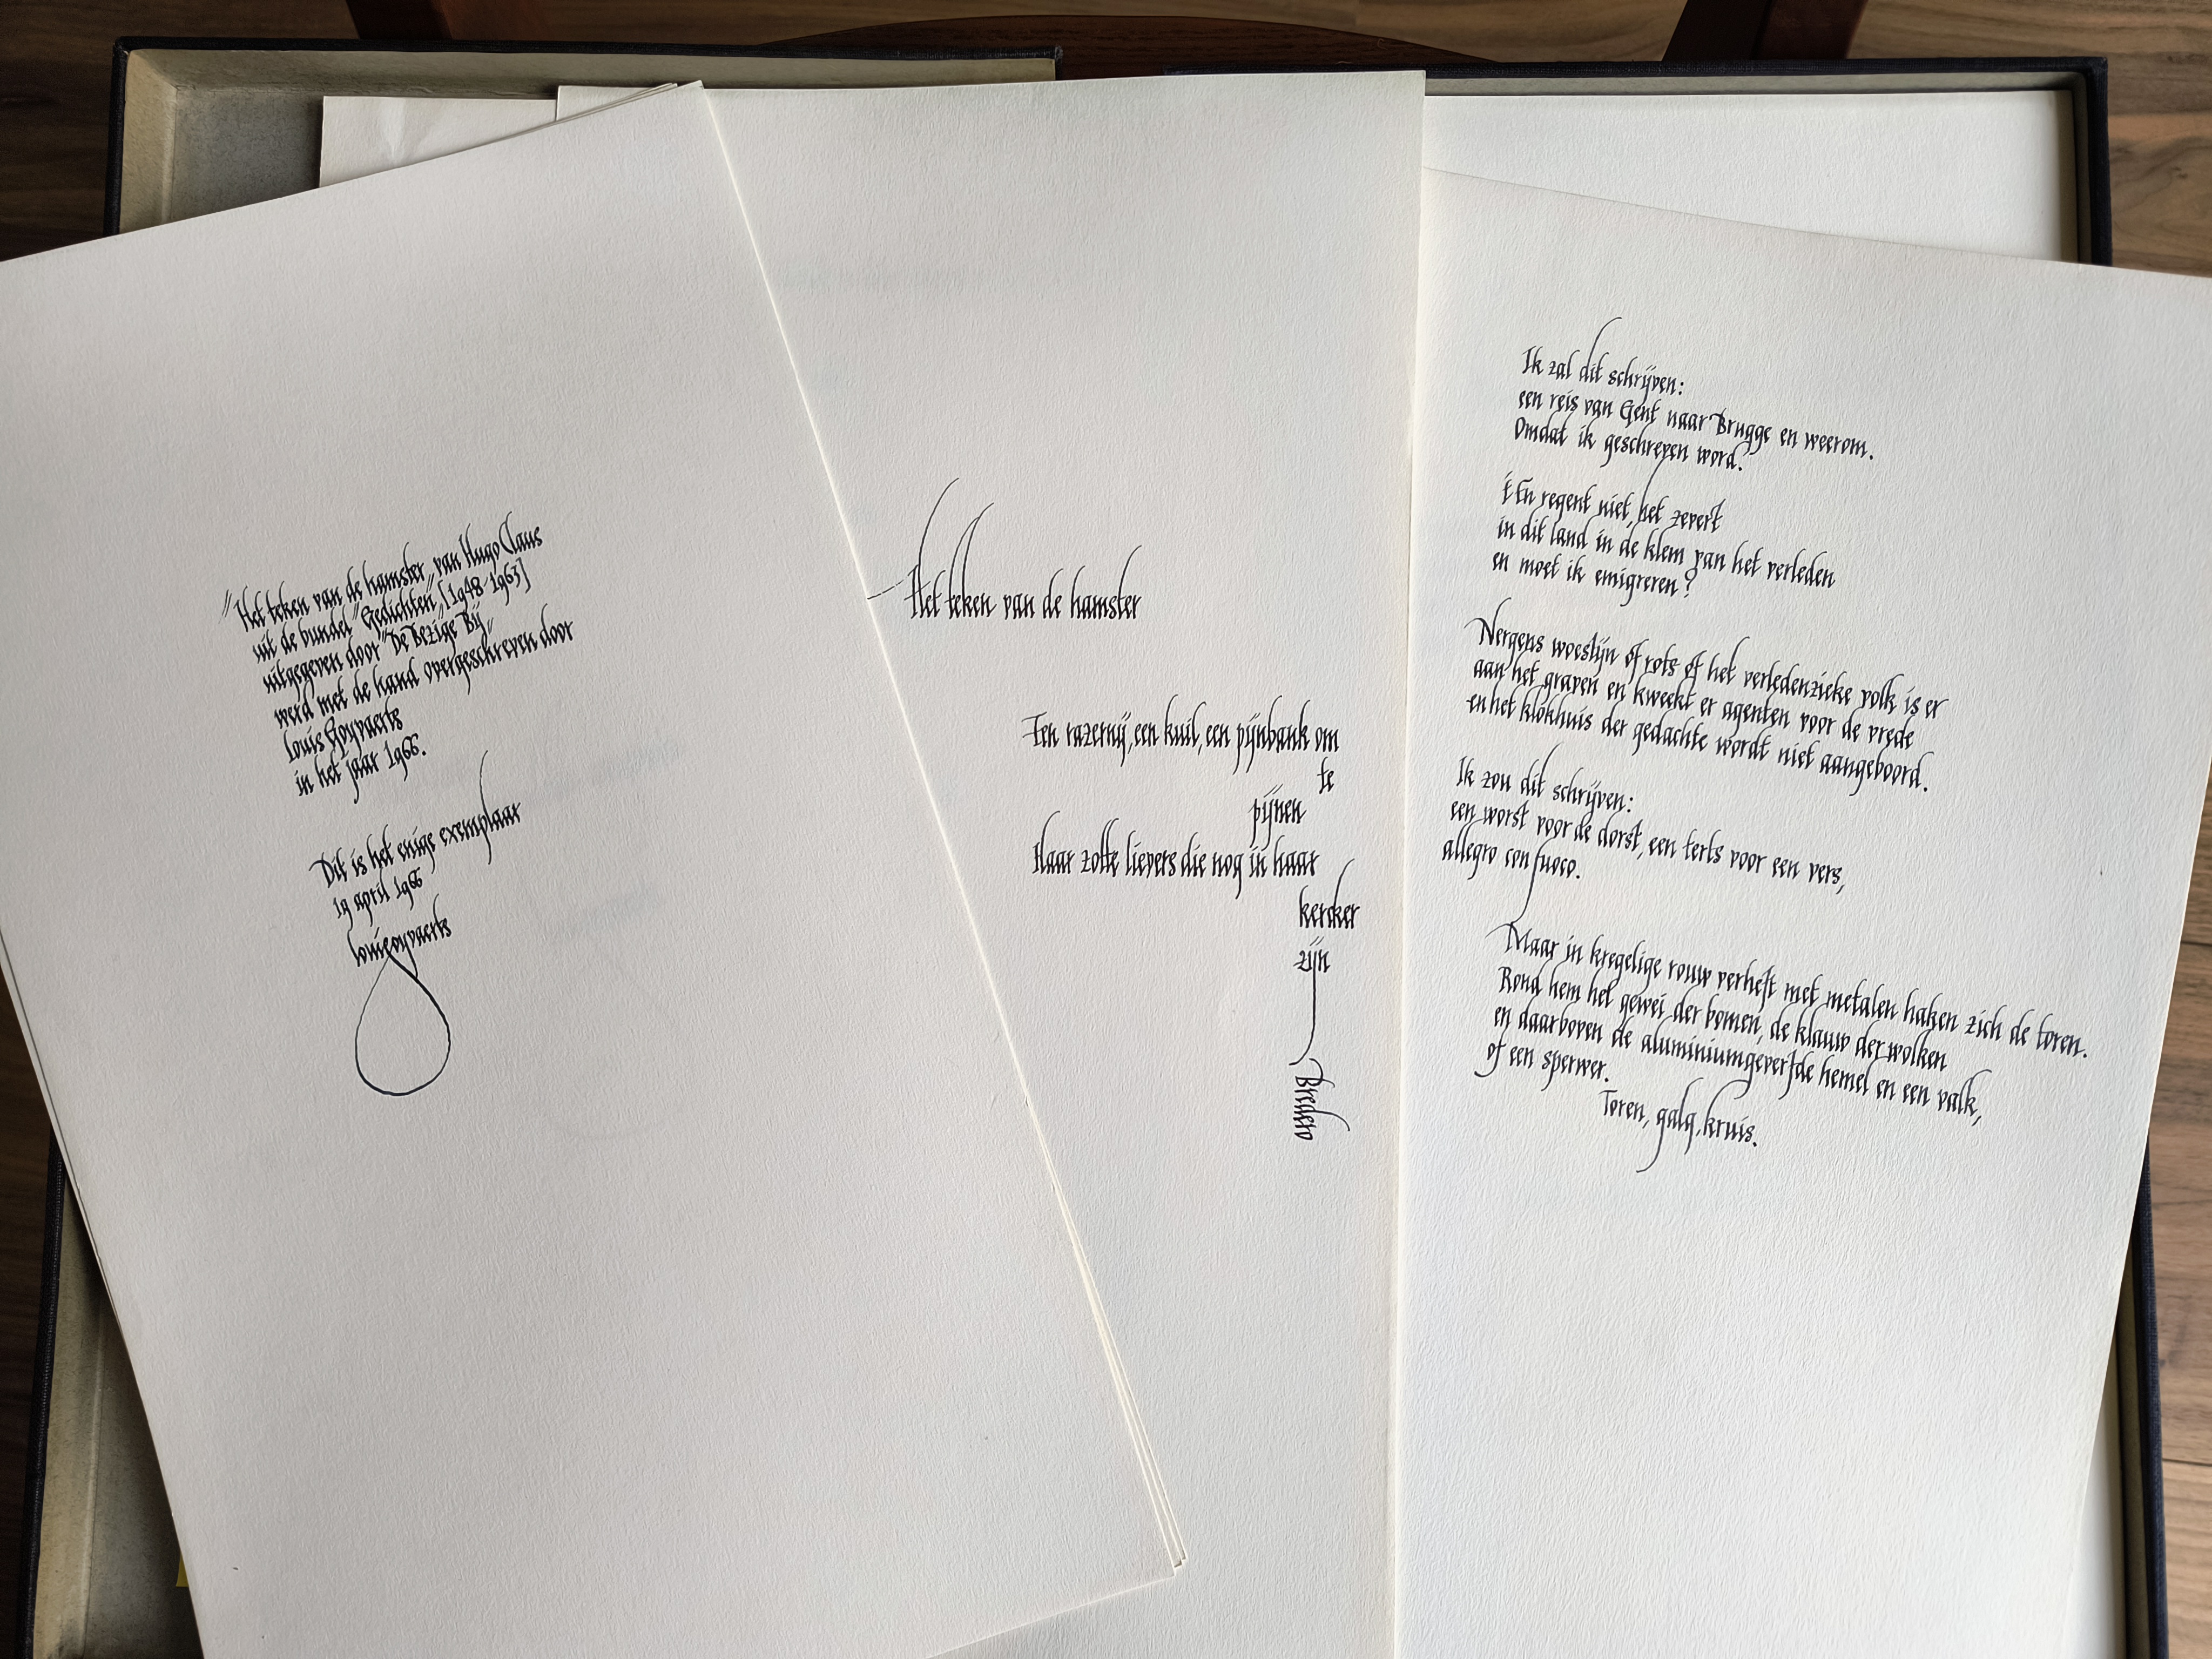 "Het teken van de hamster„ van Hugo Claus
uit de bundel "Gedichten„ [1948-1963]
uitgegeven door "De Bezige Bij„
werd met de hand overgeschreven door
Louis Goyvaerts
in het jaar 1966.
Dit is het enige exemplaar
19 april 1966
louisgoyvaerts
Het teken van de hamster
Een razernij, een kuil, een pijnbank om
te
pijnen
Haar zotte lievers die nog in haar
kercker
zijn
Bredero
Ik zal dit schrijven:
een reis van Gent naar Brugge en weerom.
Omdat ik geschreven word.
't En regent niet, het zevert
in dit land in de klem van het verleden
en moet ik emigreren?
Nergens woestijn of rots of het verledenzieke volk is er
aan het graven en kweekt er agenten voor de vrede
en het klokhuis der gedachte wordt niet aangeboord.
Ik zou dit schrijven:
een worst voor de dorst, een terts voor een vers,
allegro con fuoco.
Maar in kregelige rouw verheft met metalen haken zich de toren.
Rond hem het gewei der bomen, de klauw der wolken
en daarboven de aluminiumgeverfde hemel en een valk,
of een sperwer.
Toren, galg, kruis.